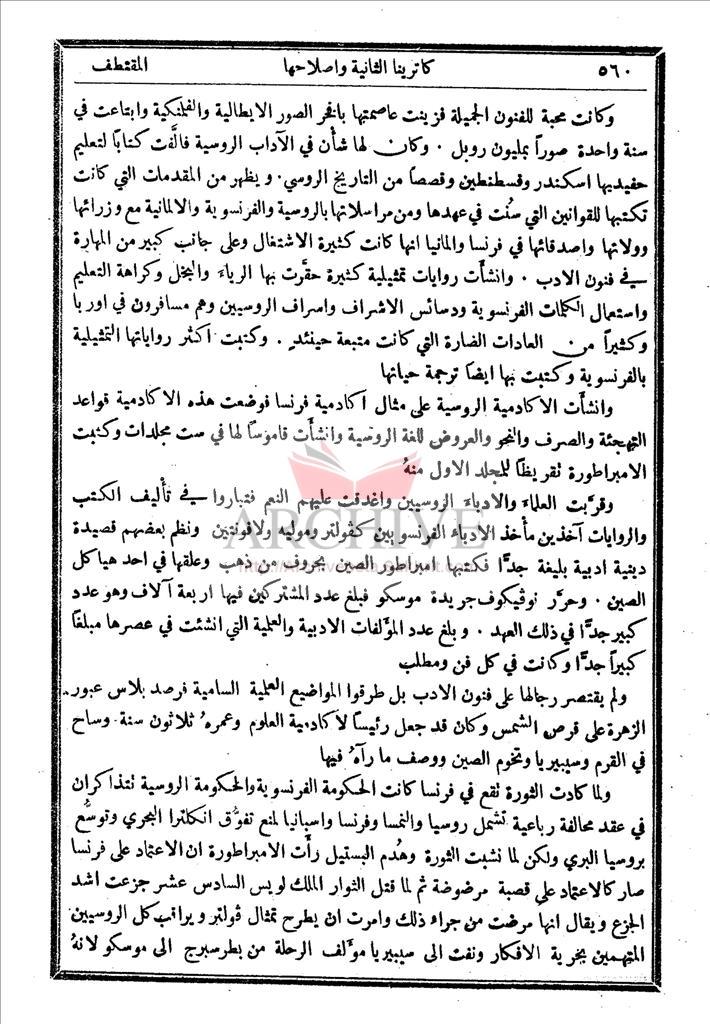 ٥٦٠ كاترينا الثانية واصلاحها المقتطف
وكانت محبة للفنون الجميلة فزينت عاصمتها بافخر الصور الايطالية والفلمنكية وابتاعت في
سنة واحدة صوراً بمليون روبل . وكان لها شأن في الآداب الروسية فالَّفت كتاباً لتعليم
حفيديها اسكندر وقسطنطين وقصصاً من التاريخ الروسي. ويظهر من المقدمات التي كانت
تكتبها للقوانين التي سُنت في عهدها ومن مراسلاتها بالروسية والفرنسوية والالمانية مع وزرائها
وولاتها واصدقائها في فرنسا والمانيا انها كانت كثيرة الاشتغال وعلى جانب كبير من المهارة
في فنون الادب . وانشأت روايات تمثيلية كثيرة حقَّرت بها الرياءَ والبخل وكراهة التعليم
واستعمال الكلمات الفرنسوية ودسائس الاشراف واسراف الروسيين وهم مسافرون في اوربا
وكثيراً من العادات الضارة التي كانت متبعة حينئذٍ . وكتبت اكثر رواياتها التمثيلية
بالفرنسوية وكتبت بها ايضاً ترجمة حياتها
وانشأت الاكادمية الروسية على مثال اكادمية فرنسا فوضعت هذه الاكادمية قواعد
التهجئة والصرف والنحو والعروض للغة الروسية وانشأت قاموساً لها في ست مجلدات وكتبت
الامبراطورة تقريظاً للمجلد الاول منهُ
وقرَّبت العلماءَ والادباءَ الروسيين واغدقت عليهم النعم فتباروا في تأليف الكتب
والروايات آخذين مأخذ الادباء الفرنسويين كڤولتر وموليه ولافونتين ونظم بعضهم قصيدة
دينية ادبية بليغة جدًّا فكتبها امبراطور الصين بحروف من ذهب وعلقها في احد هياكل
الصين . وحرَّر نوڤيكوف جريدة موسكو فبلغ عدد المشتركين فيها اربعة آلاف وهو عدد
كبير جدًّا في ذلك العهد . وبلغ عدد المؤلفات الادبية والعلمية التي انشئت في عصرها مبلغاً
كبيراً جدًّا وكانت في كل فن ومطلب
ولم يقتصر رجالها على فنون الادب بل طرقوا المواضيع العلمية السامية فرصد بلاس عبور
الزهرة على قرص الشمس وكان قد جعل رئيساً لاكادمية العلوم وعمرهُ ثلاثون سنة وساح
في القرم وسيبيريا وتخوم الصين ووصف ما رآهُ فيها
ولما كادت الثورة تقع في فرنسا كانت الحكومة الفرنسوية والحكومة الروسية تتذاكران
في عقد محالفة رباعية تشمل روسيا والنمسا وفرنسا واسبانيا لمنع تفوُّق انكلترا البحري وتوسُّع
بروسيا البري ولكن لما نشبت الثورة وهُدم البستيل رأَت الامبراطورة ان الاعتماد على فرنسا
صار كالاعتماد على قصبة مرضوضة ثم لما قتل الثوار الملك لويس السادس عشر جزعت اشد
الجزع ويقال انها مرضت من جراء ذلك وامرت ان يطرح تمثال ڤولتر ويراقب كل الروسيين
المتهمين بحرية الافكار ونفت الى سيبيريا مؤلف الرحلة من بطرسبرج الى موسكو لانهُ
ARCHIVE